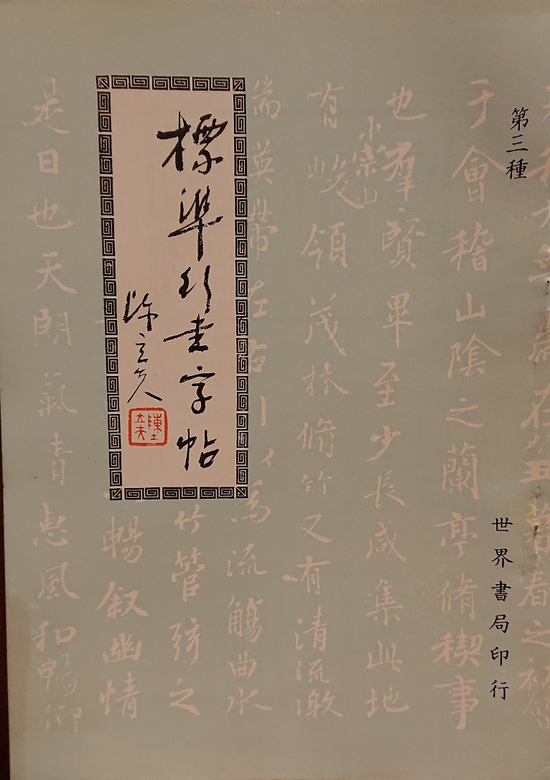 第三種
世界書局印行
歲在癸丑暮春之初會
于會稽山陰之蘭亭脩稧事
也羣賢畢至少長咸集此地
有崇山峻領茂林脩竹又有清流激
湍暎帶左右引以為流觴曲水
竹管弦之
暢叙幽情
是日也天朗氣清惠風和暢仰
標準行書字帖
陳立夫
陳立夫